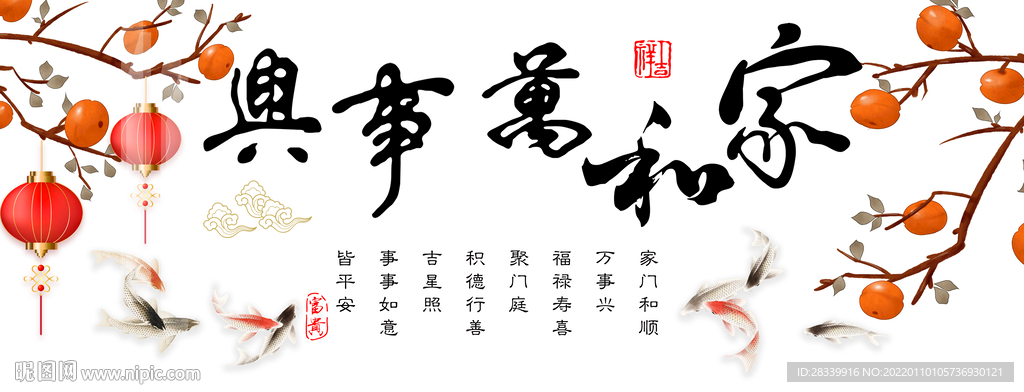 家和萬事興
吉祥
家门和顺
万事兴
福禄寿喜
聚门庭
积德行善
吉星照
事事如意
皆平安
富貴
昵图网 www.nipic.com
ID:28339916 NO:20220110105736930121